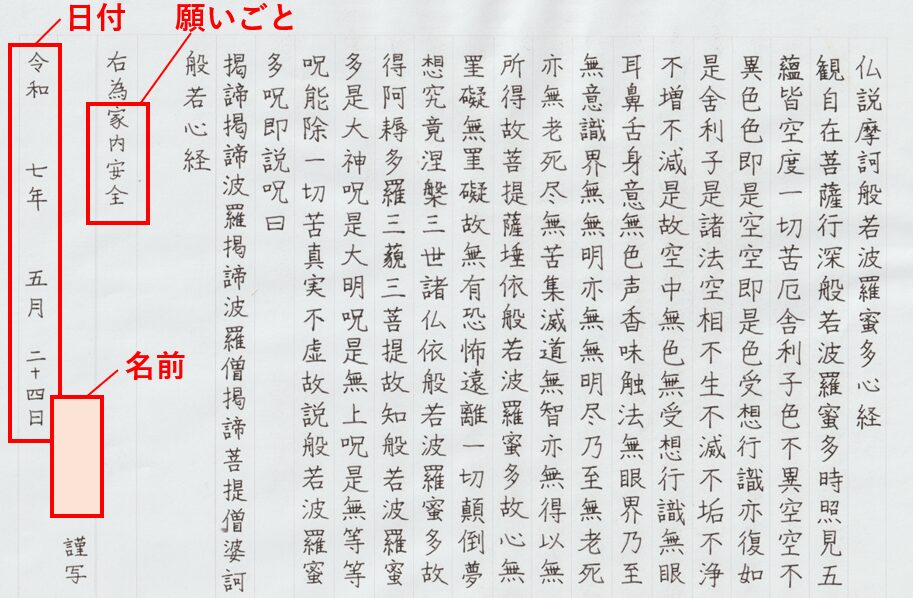 仏説摩訶般若波羅蜜多心経
観自在菩薩行深般若波羅蜜多時照見五
蘊皆空度一切苦厄舎利子色不異空空不
異色色即是空空即是色受想行識亦復如
是舎利子是諸法空相不生不滅不垢不浄
不増不減是故空中無色無受想行識無眼
耳鼻舌身意無色声香味触法無眼界乃至
無意識界無無明亦無無明尽乃至無老死
亦無老死尽無苦集滅道無智亦無得以無
所得故菩提薩埵依般若波羅蜜多故心無
罣礙無罣礙故無有恐怖遠離一切顛倒夢
想究竟涅槃三世諸仏依般若波羅蜜多故
得阿耨多羅三藐三菩提故知般若波羅蜜
多是大神呪是大明呪是無上呪是無等等
呪能除一切苦真実不虚故説般若波羅蜜
多呪即説呪曰
掲諦掲諦波羅掲諦波羅僧掲諦菩提僧婆訶
般若心経
願いごと
右為家内安全
名前
謹写
日付
令和 七年 五月 二十四日